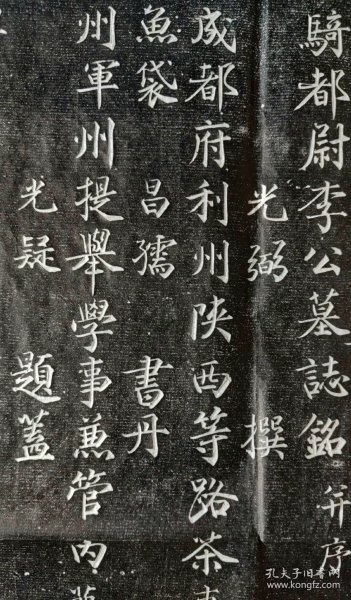 騎都尉李公墓誌銘并序
光弼 撰
成都府利州陝西等路茶
魚袋 昌孺 書丹
州軍州提舉學事兼管內
光疑 題蓋
孔夫子旧书网